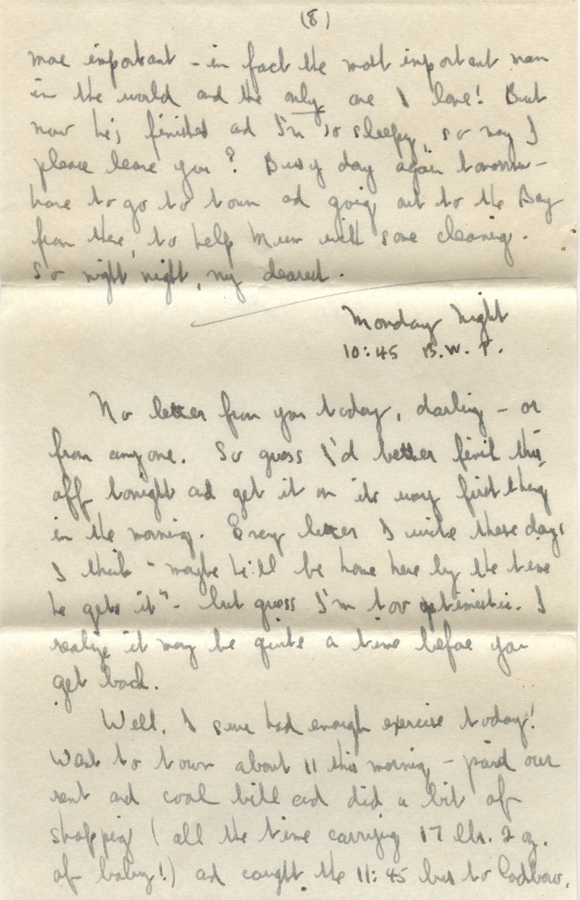 (8)
more important - in fact the most important man
in the world and the only one I love! But
now he's finished ad I'm so sleepy so may I
please leave you? Busy day again tomorrow -
have to go to town ad going out to the Bay
from there to help Mum with some cleaning.
So night night, my dearest.
Monday Night
10:45 B.W.T.
No letter from you today, darling - or
from anyone. So guess I'd better finish this
off tonight ad get it on its way first thing
in the morning. Every letter I write these days
I think "maybe he'll be home here by the time
he gets it" - but guess I'm too optimistic. I
realize it may be quite a time before you
get back.
Well, I sure had enough exercise today!
Went to town about 11 this morning - paid our
rent and coal bill ad did a bit of
shopping (all the time carrying 17 lbs. 2 oz.
of baby!) ad caught the 11:45 bus to